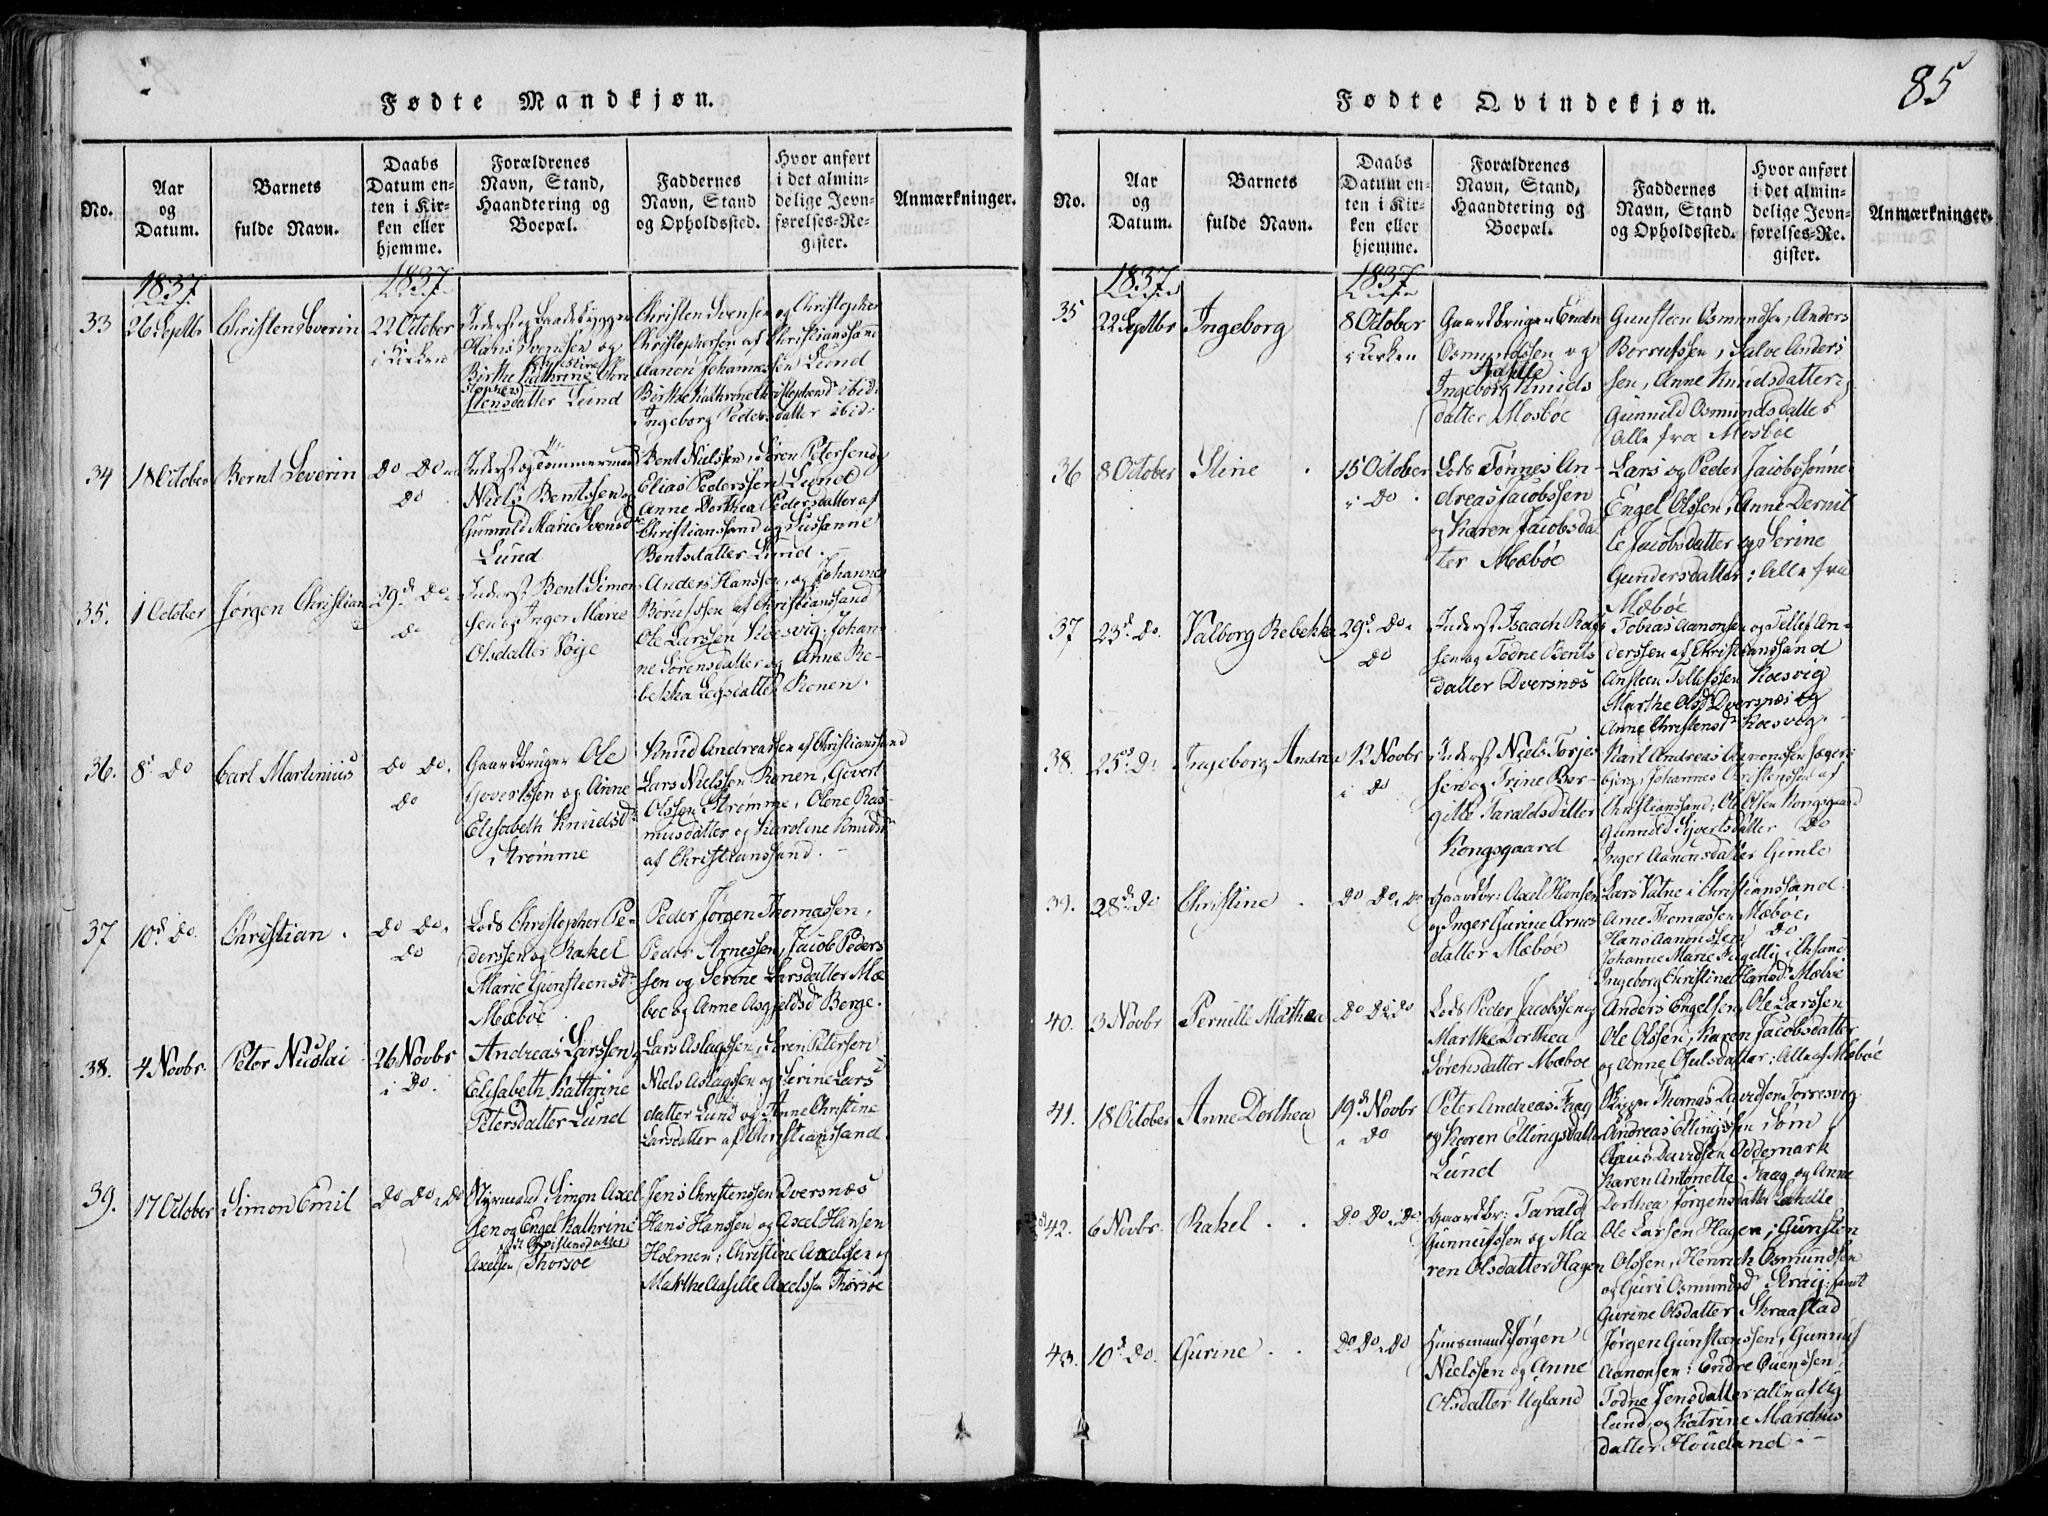 Fødte Mandkjøn.
No.
Aar og Datum.
Barnets fulde Navn.
Daabs Datum enten i Kirken eller hjemme.
Forældrenes Navn, Stand, Haandtering og Boepæl.
Faddernes Navn, Stand og Opholdssted.
Hvor anført i det almindelige Jevnførelses-Register.
Anmærkninger.
1837
1837
33
26 Septbr
Christen Severin
22 October
i Kirken
Inderst og Baadebygger
Hans Svensen og
Birthe Kathrine
Lund
Christen Svensen og Christopher
Christophersen af Christianssand
Aanon Johannessen Lund
Birthe Kathrine Christophersd. ibid:
Ingeborg Pedersdatter ibid:
34
18 October
Bernt Severin
Do Do
Do
Inderst og Tømmermand
Niels Bentssen og
Gunnild Marie Svensd:
Lund
Bent Nielssen, Søren Petersen og
Elias Pederssen Lund
Anne Dorthea Pedersdatter af
Christianssand og Sussanne
Bentsdatter Lund.
35.
1 October
Jørgen Christian
29d. Do.
Do
Inderst Bent Simon-
sen og Inger Marie
Olsdatter Søje
Anders Hanssen, og Johannes
af Christianssand
Ole Larssen Koesvig, Johan-
ne Sørensdatter og Anne Re-
bekka Leifsdatter Ronen.
36.
8d. Do
Carl Martinius
Do Do.
Do
Gaardbruger Ole
Govertssen og Anne
Elisabeth Knudsd:
Strømme
Knud Andreassen af Christianssand
Lars Nielssen Ronen, Govert
Olssen Strømme, Olene Ras-
musdatter og Karoline Knudsd
af Christianssand.
37
10d. Do.
Christian.
Do Do.
Do
Lods Christopher Pe-
derssen og Rakel
Marie Gunsteensd:
Mæbøe
Peder Jørgen Thomassen,
Peder Arnessen, Jacob Peders
sen og Serine Larsdatter Mæ
bøe og Anne Asgjeldsd. Berge.
38.
4 Novbr.
Peter Nicolai
26 Novbr
i Do.
Andreas Larssen og
Elisabeth Kathrine
Petersdatter Lund
Lars Aslagssen, Søren Petersen
Niels Aslagssen og Serine Lars
datter Lund og Anne Christine
Larsdatter af Christianssand.
39.
17 October
Simon Emil
Do Do. Do
Styrmand Simon Axel
sen og Engel Kathrine
Christensdatter
Axelsen Thorsøe
Jens Christenssen Dversnæs
Hans Hanssen og Axel Hansen
Holmen; Christine Axelssen og
Marthe Aasille Axelssen Thorsøe
Fødte Qvindekjøn.
85
No.
Aar og Datum.
Barnets fulde Navn.
Daabs Datum enten i Kirken eller hjemme.
Forældrenes Navn, Stand, Haandtering og Boepæl.
Faddernes Navn, Stand og Opholdssted.
Hvor anført i det almindelige Jevnførelses-Register.
Anmærkninger.
1837
1837
35
22 Septbr
Ingeborg
8 October
i Kirken
Gaardbruger Endre
Osmundssen og
Ingeborg Knuds
datter Mosbøe
Gunsteen Osmundsen, Anders
Salve Anders
sen, Anne Knudsdatter,
Gunnild Osmundsdatter
Alle fra Mosbøe
36
8 October
Stine
15 October
i Do
Lods Tønnes An-
dreas Jacobssen
og Karen Jacobsda
ter Mæbøe
Lars og Peder Jacobssønner
Engel Olssen, Anne Pernil
le Jacobsdatter og Serine
Gundersdatter: Alle fra
Mæbøe
37
23d. Do.
Valborg Rebekka
29d. Do.
Do
Inderst Isaach
sen og Todne Bents
datter Dversnæs
Tobias Aanonsen og Tellef An-
derssen af Christianssand
Ansteen Tellefssen Koesvig
Marthe Olsd. Dversnæs og
Anne Christensd. Koesvig.
38.
25d. D:
Ingeborg Andrea
12 Novbr
i Do
Inderst Niels Torjes
sen og Trine Bor-
gitte Haraldsdatter
Kongsgaard
Karl Andreas Aanonsen
Johannes Christenssen af
Christianssand; Ole Olsen Kongsgaard
Gunnild Do
Inger Aanonsdatter Gimle
39.
28d. Do
Christine
Do Do. Do
Gaardbr: Axel Hansen
og Inger Gurine Arnes
datter Mæbøe
Lars Vatne i Christianssand
Arne Thomassen Mæbøe,
Hans Aanonssen Do
Johanne Marie
Ingeborg Christine Hansd. Mæbøe
40.
3 Novbr
Pernille Mathea
Do Do. Do
Lods Peder Jacobssen og
Marthe Dorthea
Sørensdatter Mæbøe
Anders Engelsen, Ole Larssen
Ole Olssen, Karen Jacobsdatter
og Anne Ousdatter: Alle af Mæbøe
41.
18 October
Anne Dorthea
19d. Novbr
i Do
Peter Andreas Faag
og Karen Ellingsdatter
Lund
Thomas Davidsen Torresvig
Andreas Ellingssen Søm
Davidsen Oddernark
Karen Antonette Faag og Anne
Dorthea Jørgensdatter
42.
6 Novbr.
Rakel
Do Do. Do
Gaardbr: Tarald
Gunnufssen og Ma
ren Olsdatter Hagen
Ole Larssen Hagen; Gunsten
Olssen, Henrich Osmundsen
og Guri Osmundsd. Straj: samt
Gurine Olsdatter Skraastad
43.
10d. Do.
Gurine
Do Do. Do
Huusmand Jørgen
Nielssen og Anne
Olsdatter Ugland
Jørgen Gunstenssen, Gunnuf
Aanonsen: Endre
Todne Jensdatter alle af Ug
Lund, og Katrine Marchus
datter Houeland.